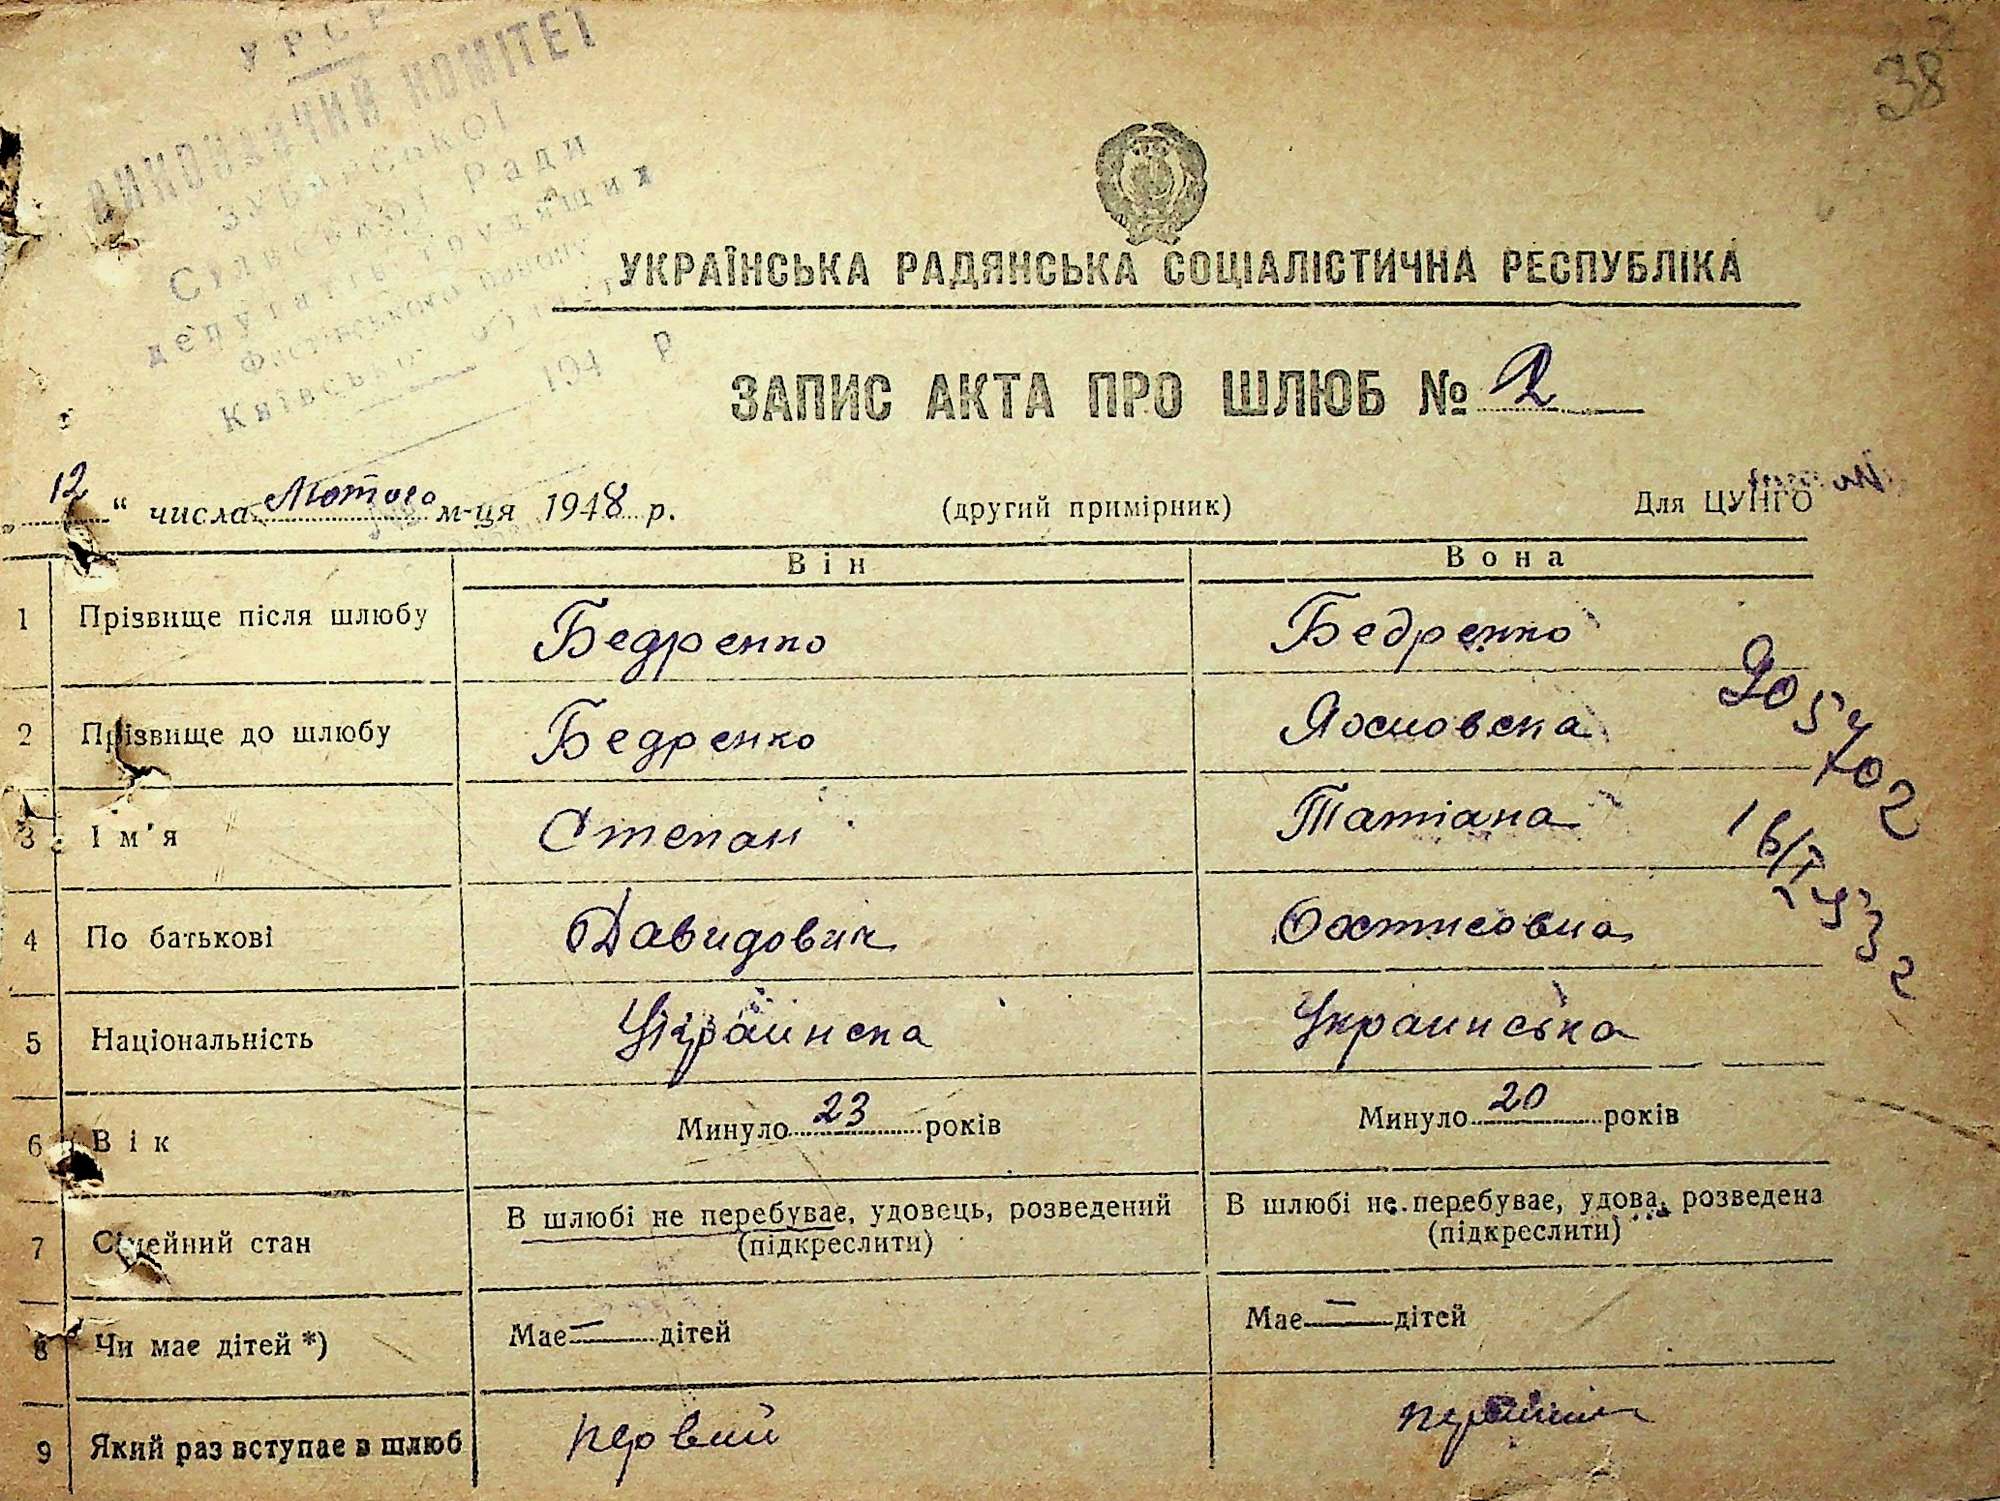 УРСР
ВИКОНАВЧИЙ КОМІТЕТ
Зубарської
Сільської Ради
депутатів трудящих
Фастівського району
Київської області
194 р
38
УКРАЇНСЬКА РАДЯНСЬКА СОЦІАЛІСТИЧНА РЕСПУБЛІКА
ЗАПИС АКТА ПРО ШЛЮБ № 2
„12“ числа Лютого м-ця 1948 р. (другий примірник) Для ЦУНГО
Він Вона
1 Прізвище після шлюбу Бедренко Бедренко
2 Прізвище до шлюбу Бедренко
905702
3 Ім'я Степан Татіана
4 По батькові Давидович
5 Національність Украинска Украинська
6 Вік Минуло 23 років Минуло 20 років
7 Сімейний стан В шлюбі не перебуває, удовець, розведений В шлюбі не перебуває, удова, розведена
(підкреслити) (підкреслити)
8 Чи має дітей *) Має — дітей Має — дітей
9 Який раз вступає в шлюб первий